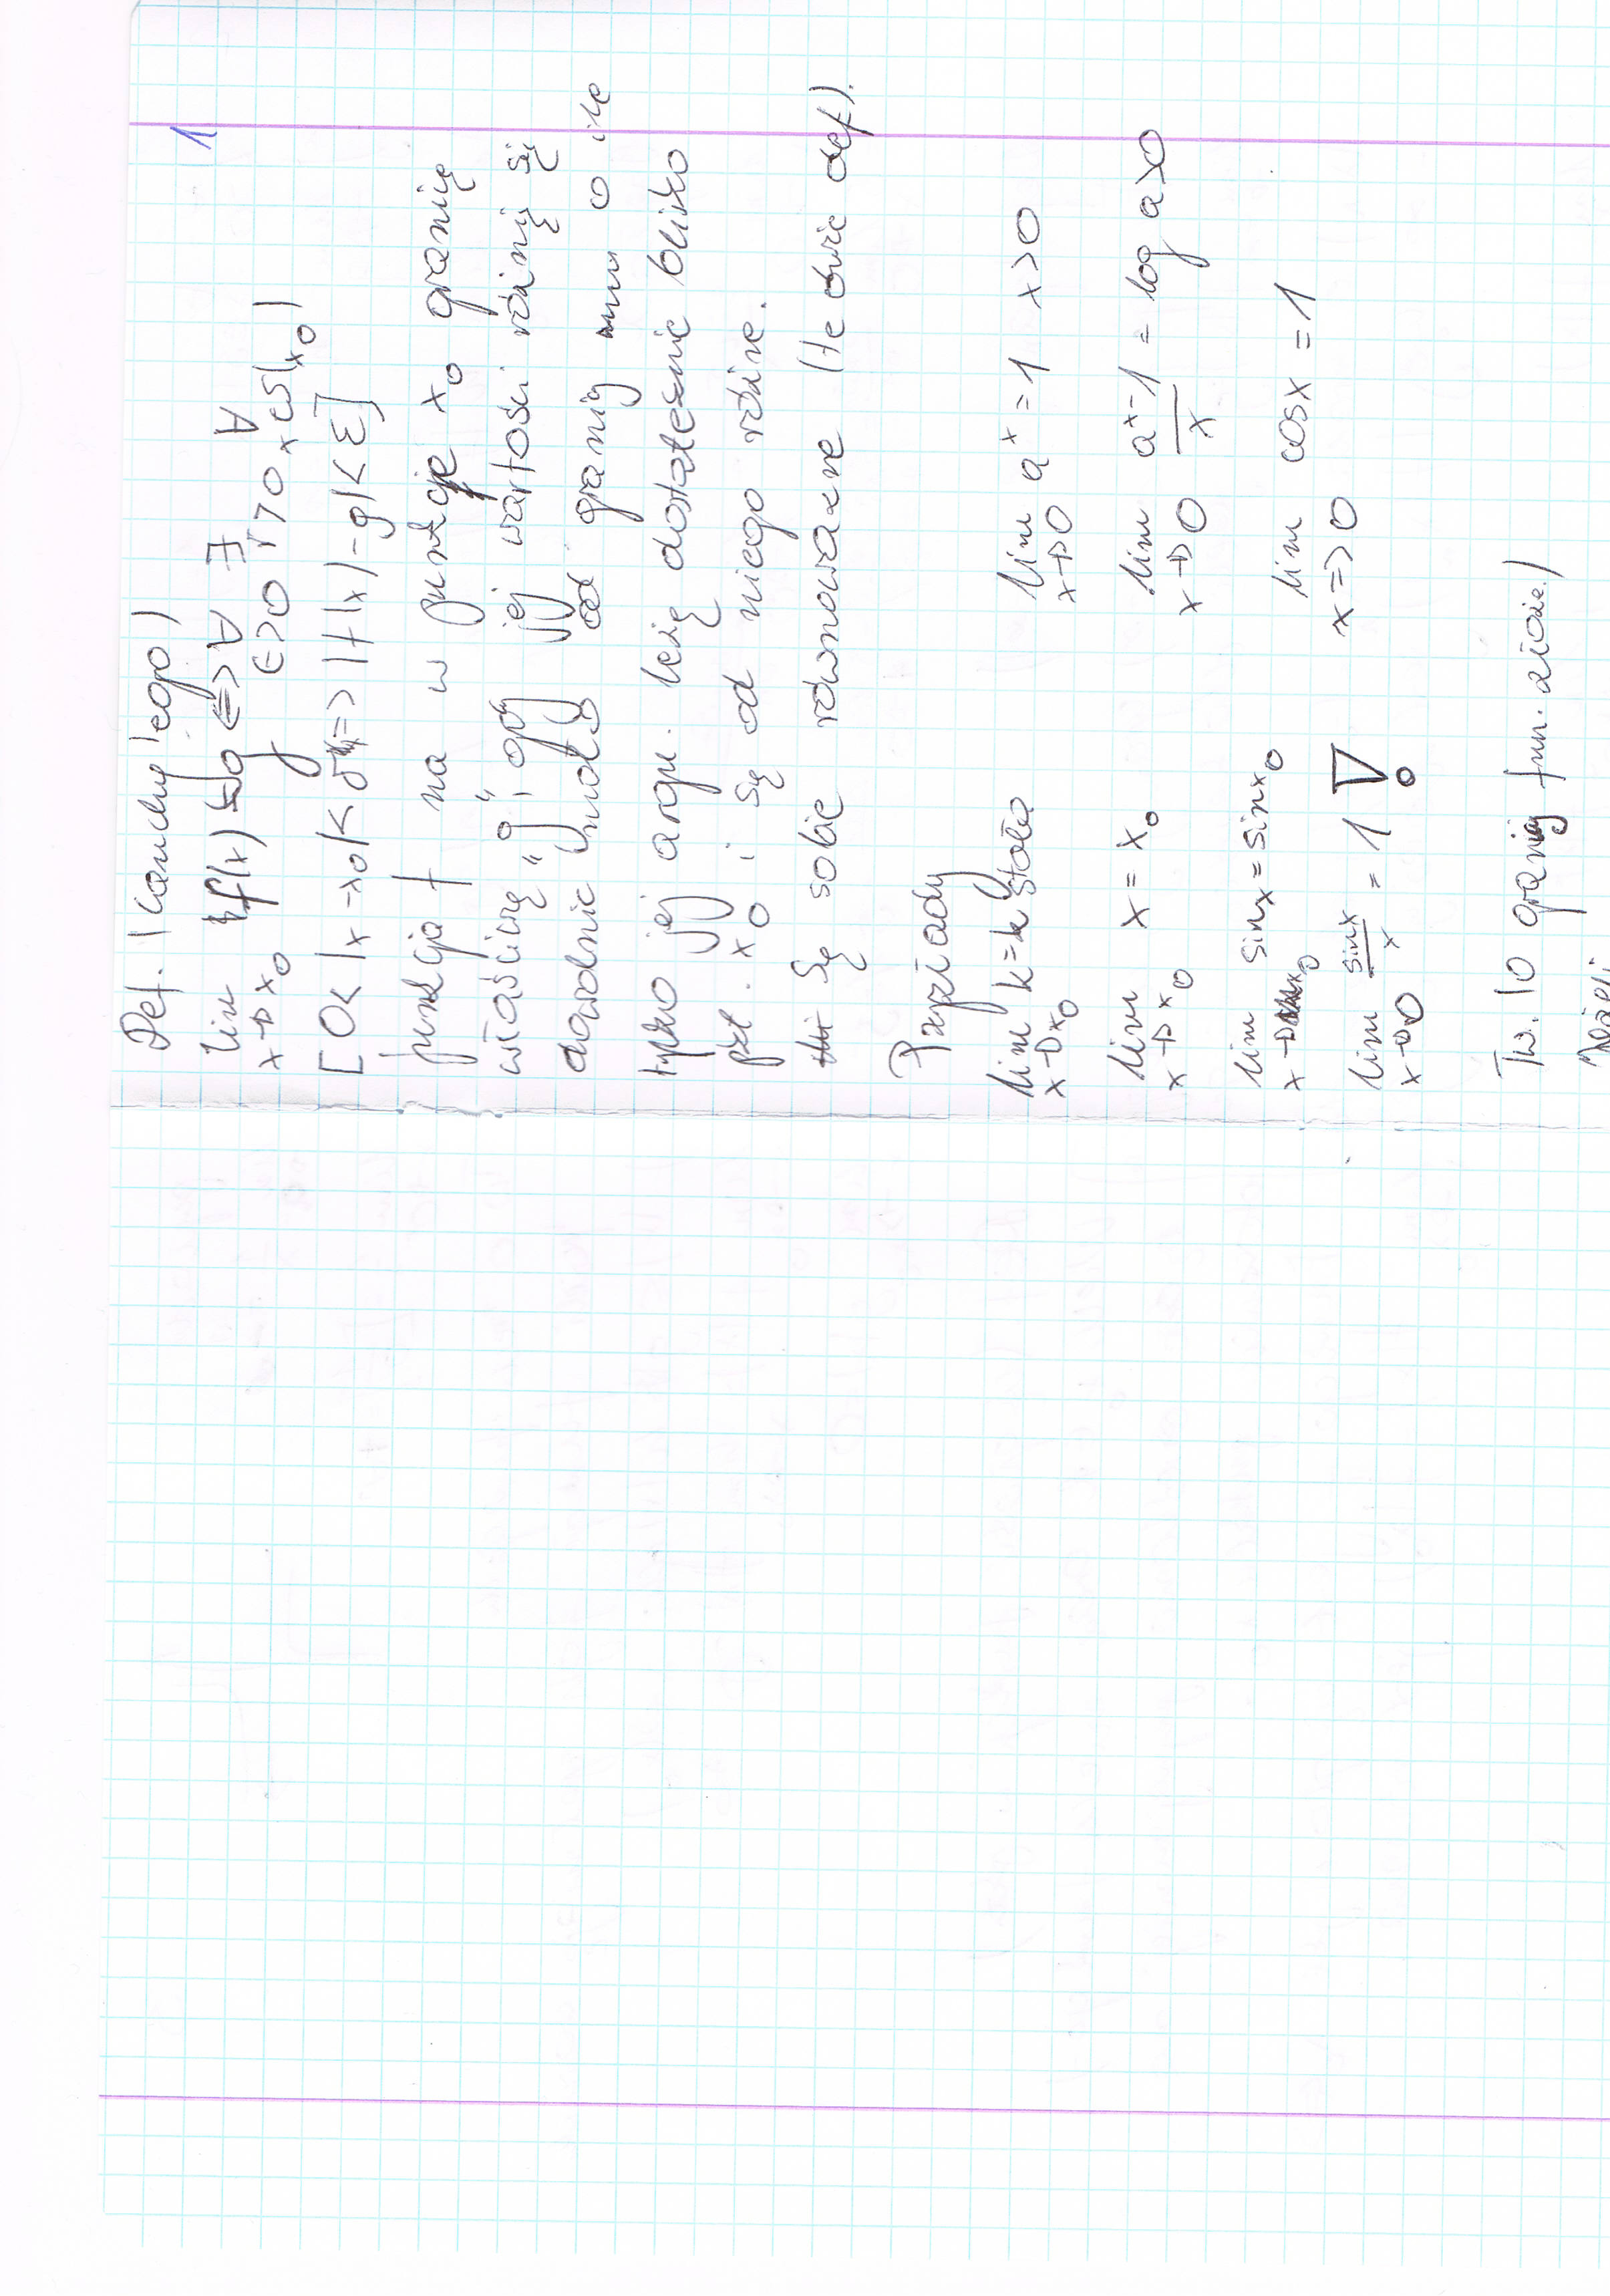 1
Def. (Cauchy'ego)
lim f(x) = g <=> ∀ ∃ ∀
x→x0 ε>0 r>0 x∈S(x0)
[0<|x-x0|<δ => |f(x)-g|<ε]
funkcja f ma w punkcje x0 granicę
właściwą "g", gdy jej wartości różnią się
dowolnie mało od granicy o ile
tylko jej argu. leżą dostatecznie blisko
pkt. x0 i są od niego różne.
są sobie równoważne (te dwie def).
Przykłady
lim k=k stała lim a^x = 1 x>0
x→x0 x→0
lim x = x0 lim (a^x-1)/x = log a>0
x→x0 x→0
lim sinx = sinx0 lim cosx = 1
x→x0 x=>0
lim sinx/x = 1 !
x→0
Tw. (o granicy fun. złoże.)